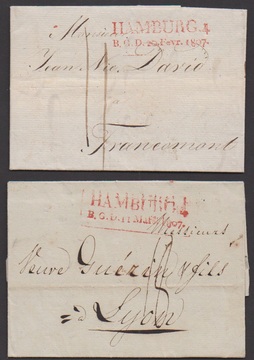 HAMBURG.4
B.G.D. 22 Fevr. 1807.
Monsieur
Jean Nic. David
à
Francomont
HAMBURG.4
B.G.D. 11 Mars 1807.
Messieurs
Veuve Guérin & fils
à Lyon